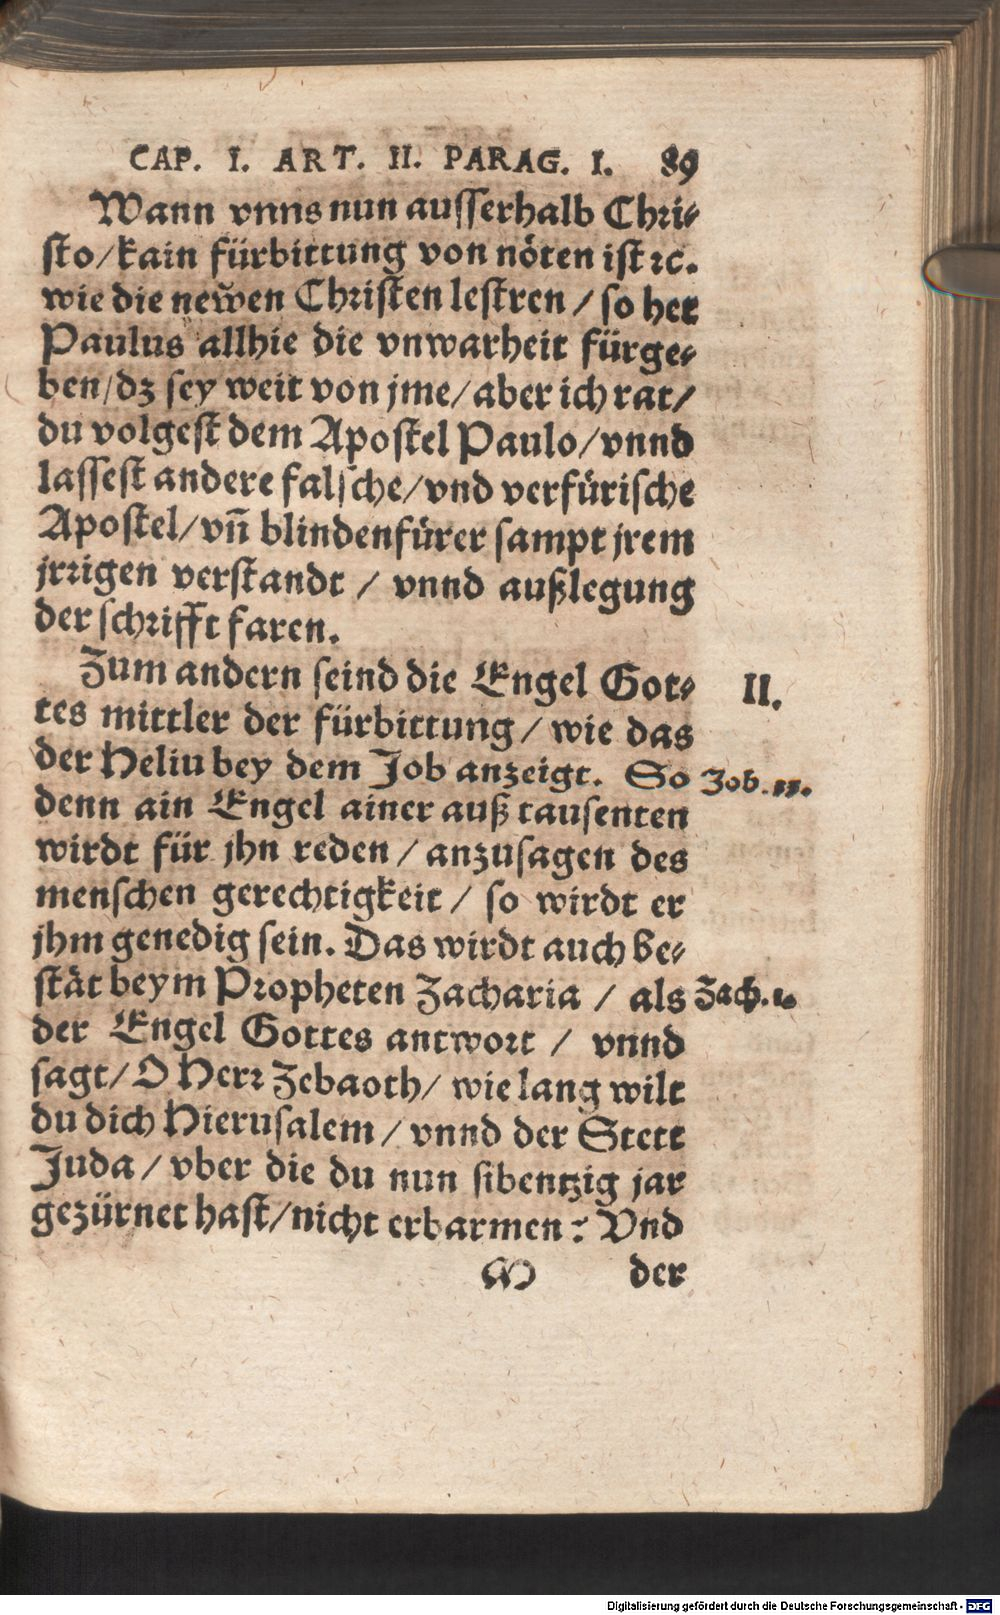 CAP. I. ART. II. PARAG. I. 89
Wann vnns nun ausserhalb Chri-
sto/kain fürbittung von nöten ist ꝛc.
wie die newen Christen lestren / so het
Paulus allhie die vnwarheit fürge-
ben/dz sey weit von jme/aber ich rat/
du volgest dem Apostel Paulo/vnnd
lassest andere falsche/vnd verfürische
Apostel/vn̄ blindenfürer sampt jrem
jrrigen verstandt / vnnd außlegung
der schrifft faren.
Zum andern seind die Engel Got-
II.
tes mittler der fürbittung/ wie das
der Heliu bey dem Job anzeigt. So
Job.
denn ain Engel ainer auß tausenten
wirdt für jhn reden / anzusagen des
menschen gerechtigkeit / so wirdt er
jhm genedig sein. Das wirdt auch be-
stät beym Propheten Zacharia / als
Zach. 1.
der Engel Gottes antwort / vnnd
sagt/O Herr Zebaoth/ wie lang wilt
du dich Hierusalem / vnnd der Stett
Juda / vber die du nun sibentzig jar
gezürnet hast/nicht erbarmen? Vnd
M der
Digitalisierung gefördert durch die Deutsche Forschungsgemeinschaft - DFG